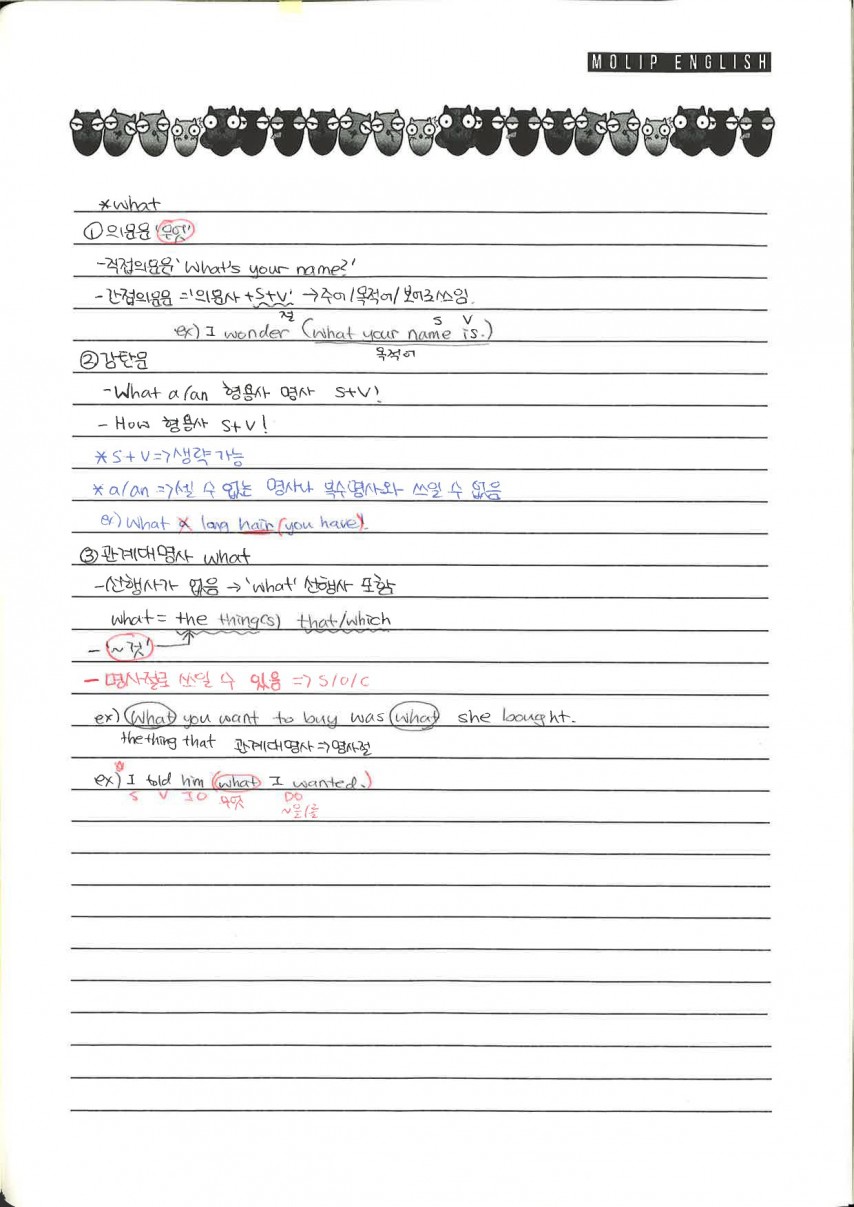 MOLIP ENGLISH
*what
①의문문 '무엇'
-직접의문문 'What's your name?'
-간접의문문 ='의문사 +S+V' →주어/목적어/보어로 쓰임.
절
S V
ex) I wonder (what your name is.)
목적어
②감탄문
-What a/an 형용사 명사 S+V!
- How 형용사 S+V!
*S+V=>생략가능
*a/an =>셀 수 없는 명사나 복수명사와 쓰일 수 없음
ex) What a long hair (you have).
③관계대명사 what
-선행사가 없음 → 'what' 선행사 포함
what = the thing(s) that/which
- '~것'
- 명사절로 쓰일 수 있음 => S/O/C
ex) What you want to buy was what she bought.
the thing that 관계대명사=>명사절
ex) I told him (what I wanted.)
S V IO 무엇 DO
~을/를